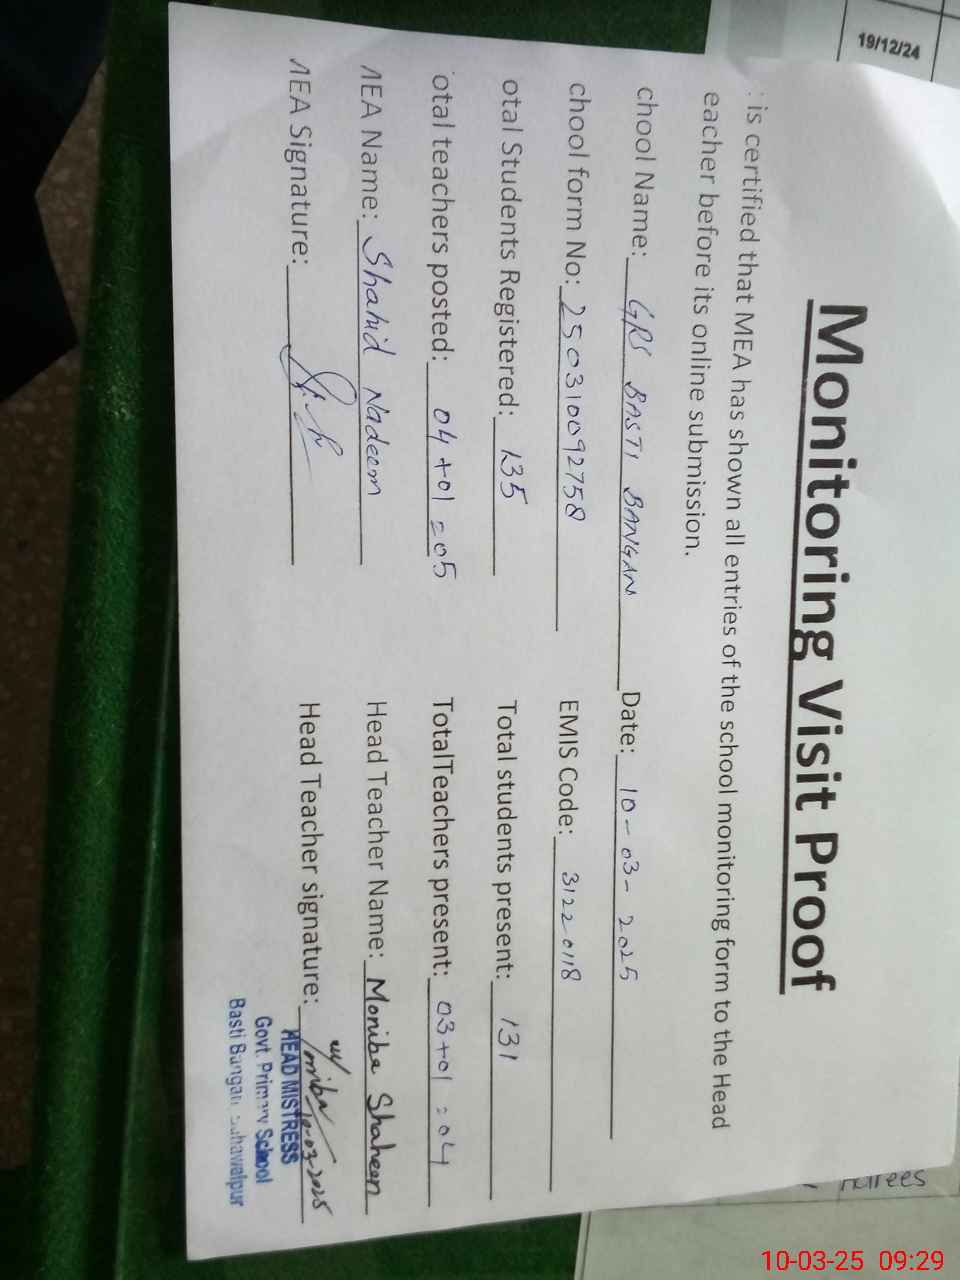 Monitoring Visit Proof
is certified that MEA has shown all entries of the school monitoring form to the Head
eacher before its online submission.
chool Name: GPS BASTI BANGAN Date: 10-03-2025
chool form No: 250310092758 EMIS Code: 31220118
otal Students Registered: 135 Total students present: 131
otal teachers posted: 04+01=05 TotalTeachers present: 03+01=04
MEA Name: Shahid Nadeem Head Teacher Name: Moniba Shaheen
MEA Signature: Head Teacher signature:
10-03-2025
HEAD MISTRESS
Govt. Primary School
Basti Bangan Bahawalpur
19/12/24
10-03-25 09:29